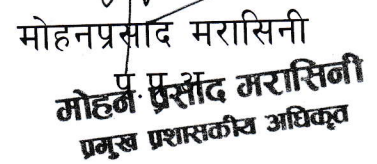 मोहनप्रसाद मरासिनी
प्र. प्र. अ.
मोहन प्रसाद मरासिनी
प्रमुख प्रशासकीय अधिकृत